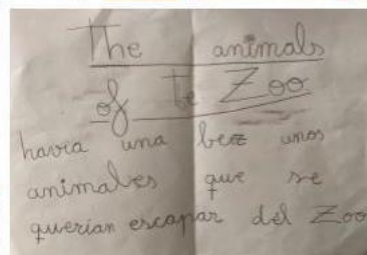 The animals
of te Zoo
havia una bez unos
animales que se
querian escapar del Zoo